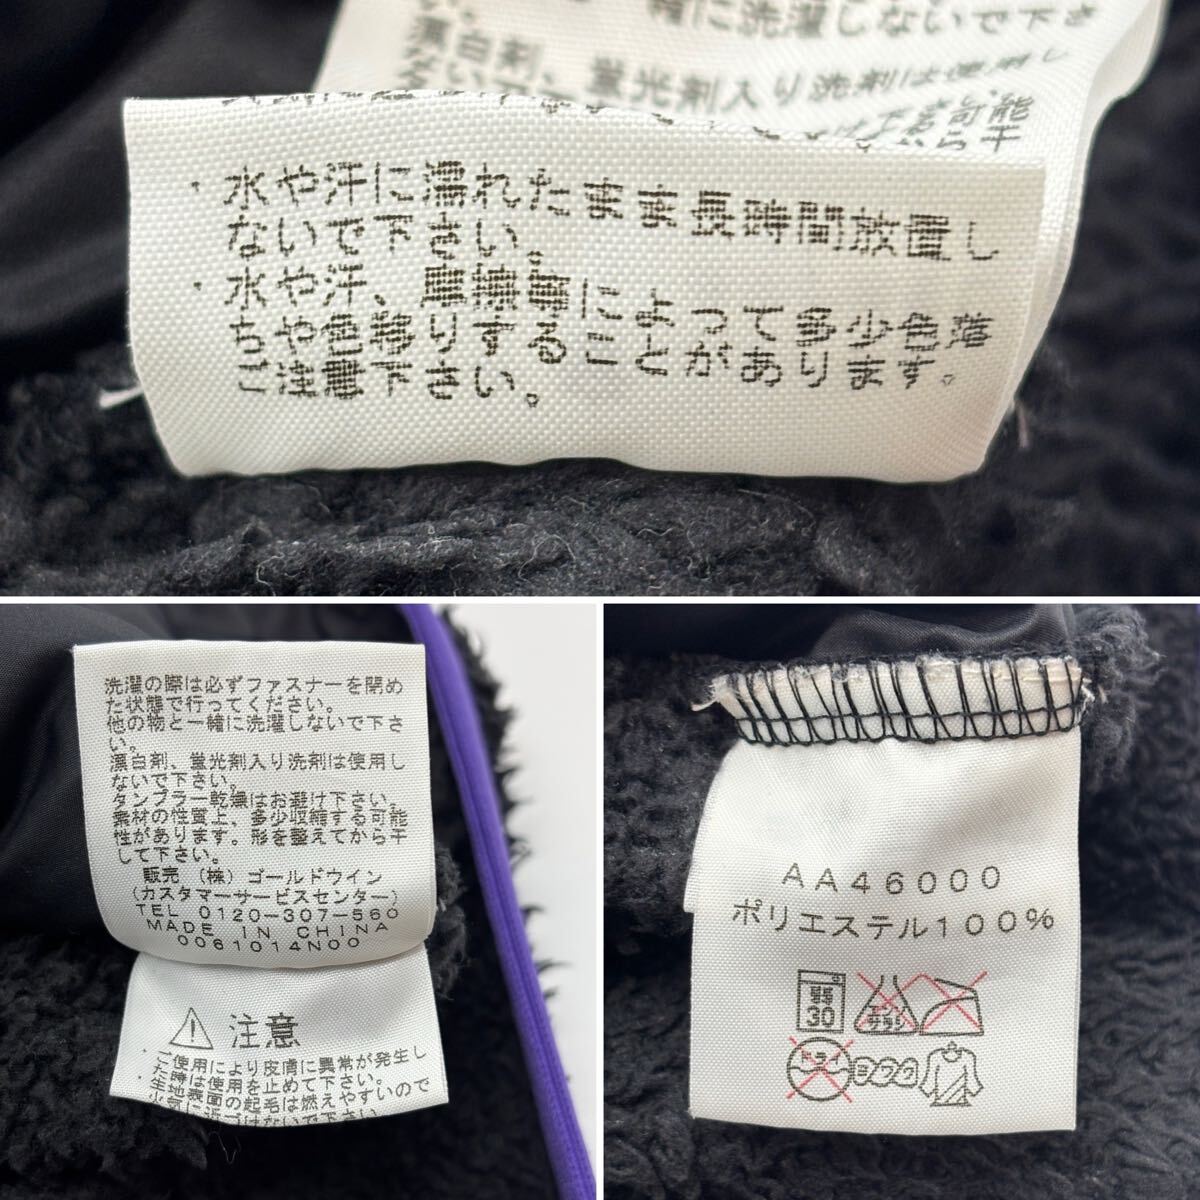 緒に洗濯しないで下さ
漂白剤、蛍光剤入り洗剤は使用し
可能
から干
・水や汗に濡れたまま長時間放置し
ないで下さい。
・水や汗、摩擦等によって多少色落
ちや色移りすることがあります。
ご注意下さい。
洗濯の際は必ずファスナーを閉め
た状態で行ってください。
他の物と一緒に洗濯しないで下さ
い。
漂白剤、蛍光剤入り洗剤は使用し
ないで下さい。
タンブラー乾燥はお避け下さい。
素材の性質上、多少収縮する可能
性があります。形を整えてから干
して下さい。
販売 (株) ゴールドウイン
(カスタマーサービスセンター)
TEL 0120-307-560
MADE IN CHINA
0061014N00
注意
・ご使用により皮膚に異常が発生し
た時は使用を止めて下さい。
・生地表面の起毛は燃えやすいので
火気に近づけないで下さい
AA46000
ポリエステル100%
弱
30
エンソ
サラシ
ドライ
ヨワク